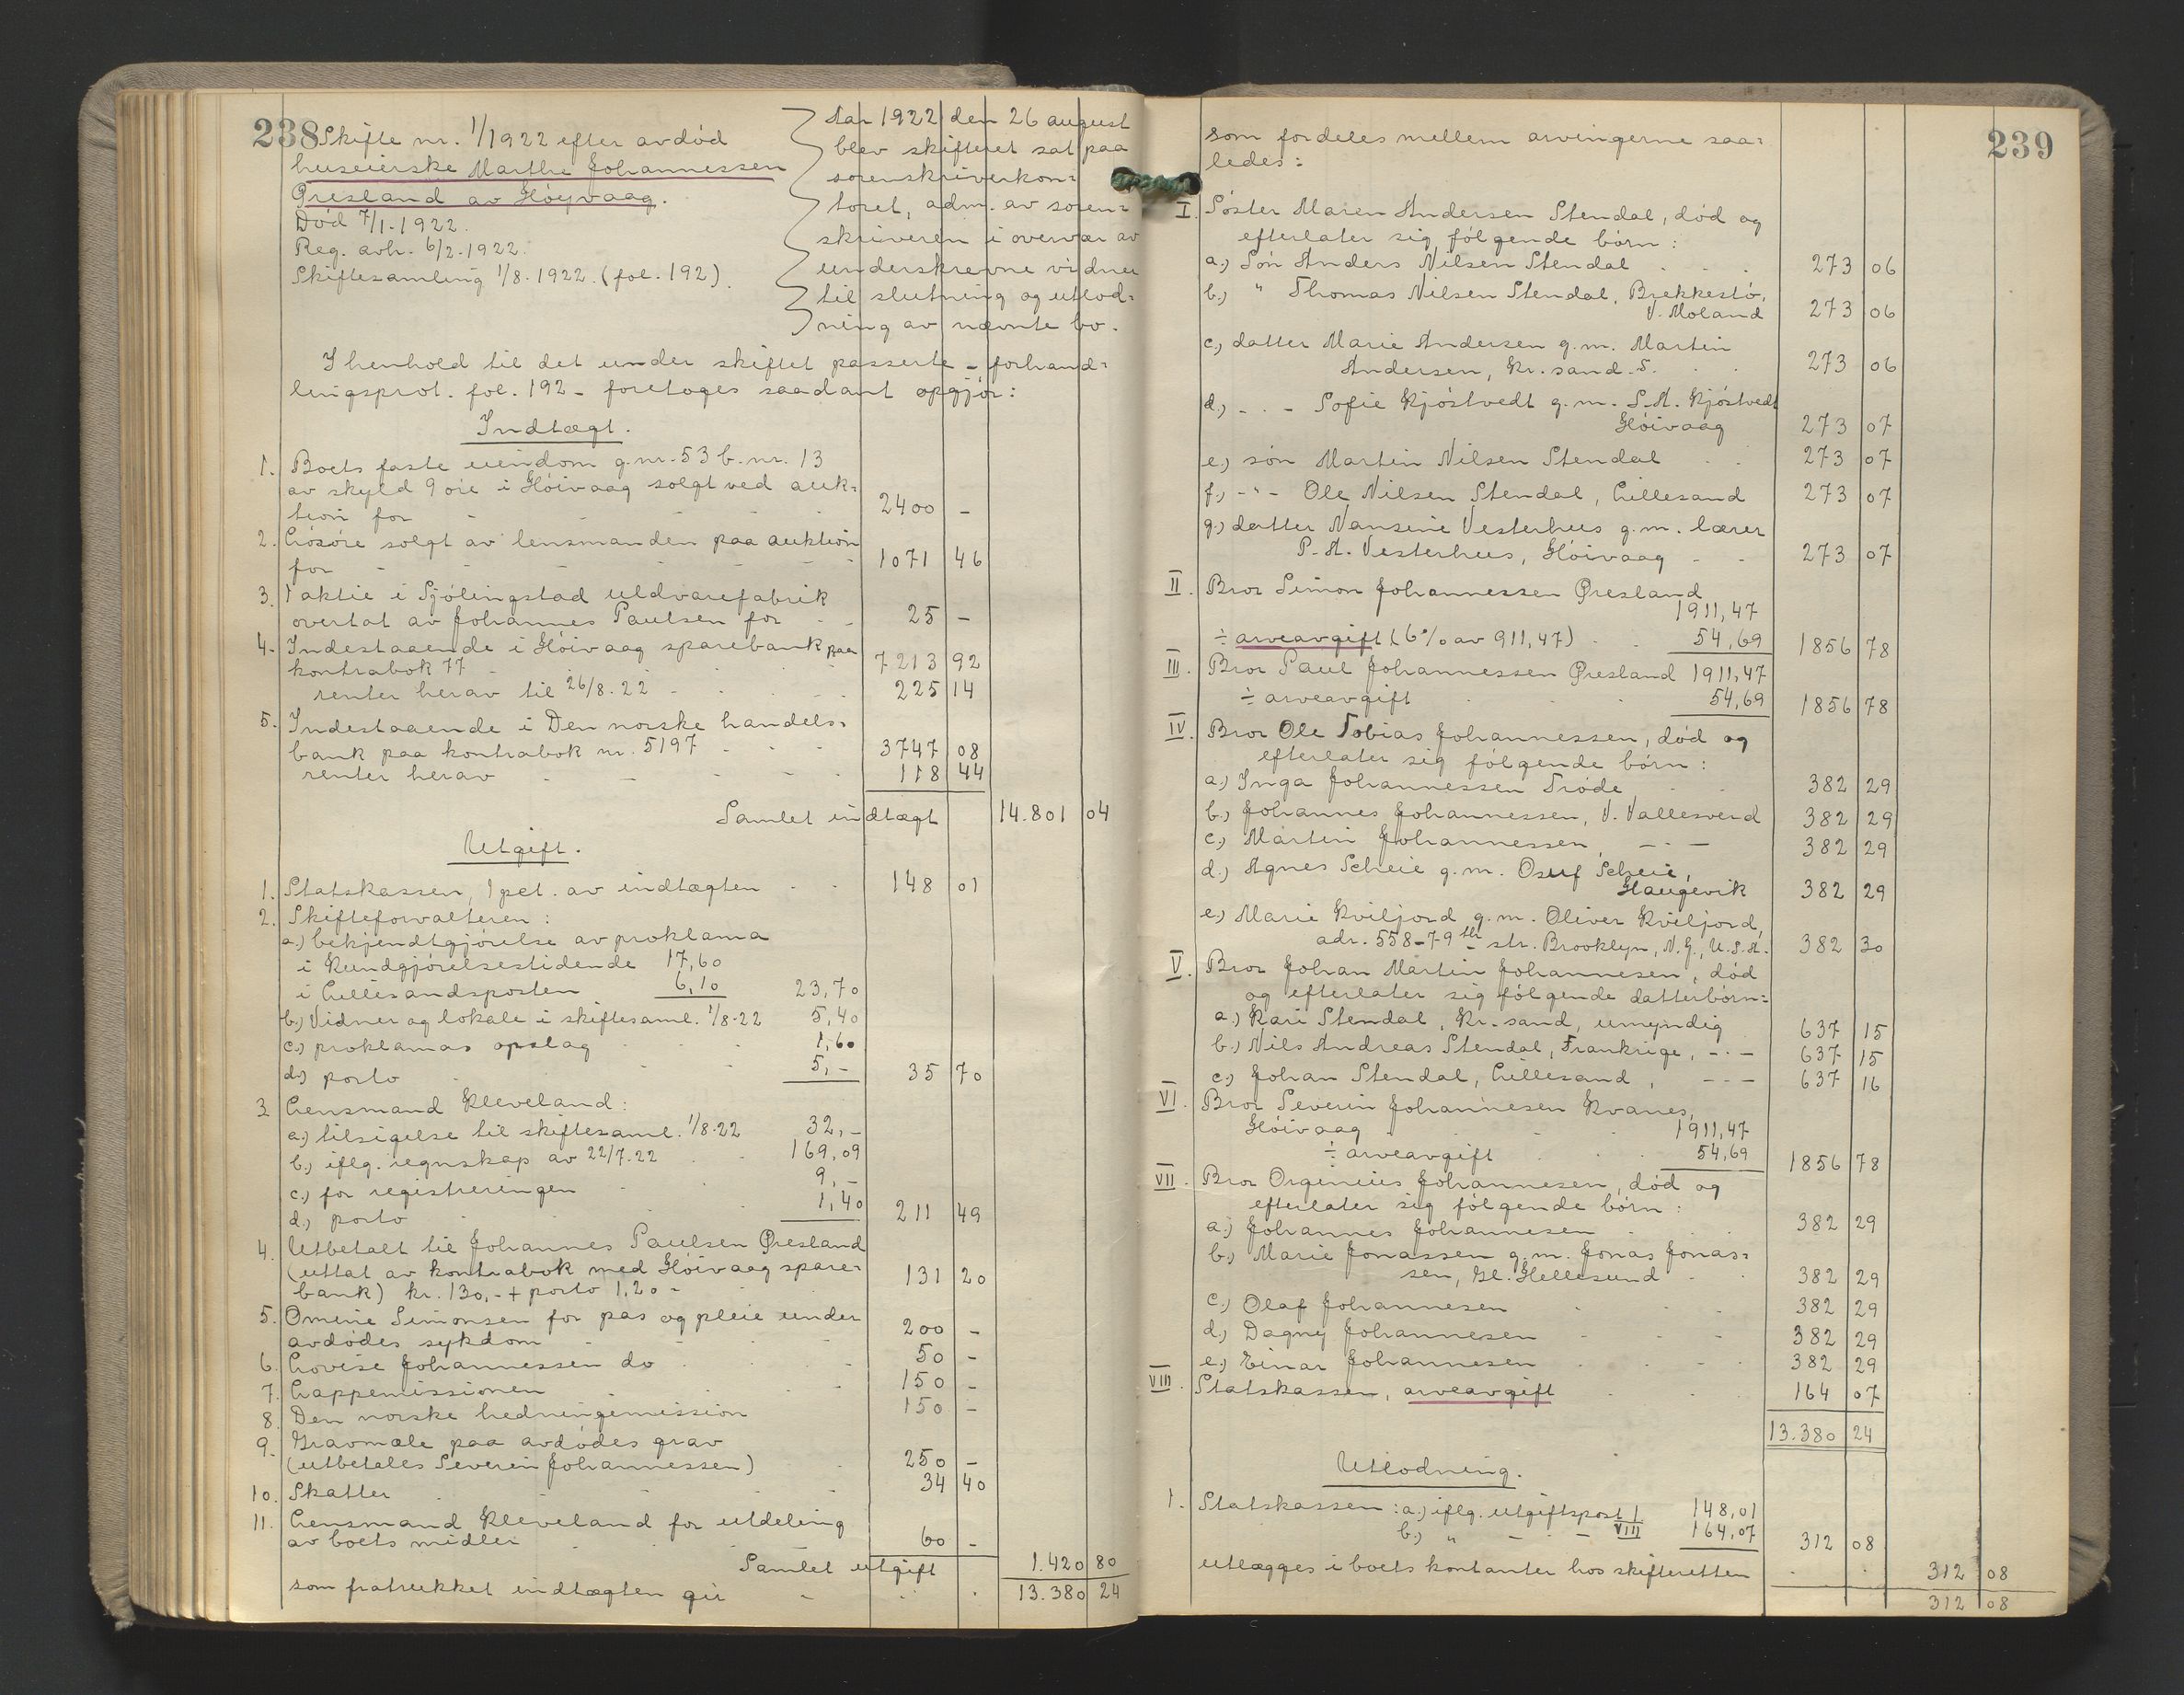 238
Skifte nr. 1/1922 efter avdöd
huseierske Marthe Johannessen
Øresland av Höyvaag.
Död 7/1-1922.
Reg. avh. 6/2-1922.
Skiftesamling 1/8-1922. (fol. 192).
Aar 1922 den 26 august
blev skifteret sat paa
sorenskriverkon-
toret, adm. av soren-
skriveren i overvær av
underskrevne vidner
til slutning og utlod-
ning av nævnte bo.
I henhold til det under skiftet passerte - forhand-
lingsprot. fol. 192 - foretoges saadant opgjör:
Indtægt.
1. Boets faste eiendom g.nr. 53 b.nr. 13
av skyld 9 öre i Höivaag solgt ved auk-
tion for - 2400 -
2. Lösöre solgt av lensmanden paa auktion
for - 1071 46
3. 1 aktie i Sjölingstad uldvarefabrik
overtat av Johannes Paulsen for - 25 -
4. Indestaaende i Höivaag sparebank paa
kontrabok 77 - 7213 92
renter herav til 26/8-22 - 225 14
5. Indestaaende i Den norske handels-
bank paa kontrabok nr. 5197 - 3747 08
renter herav - 118 44
Samlet indtægt 14.801 04
Utgift.
1. Statskassen, 1 pct. av indtægten - 148 01
2. Skifteforvalteren:
a.) bekjendtgjörelse av proklama
i Kundgjörelsestidende 17,60
i Lillesandsposten 6,10 23,70
b.) Vidner og lokale i skiftesaml. 1/8-22 5,40
c.) proklamas opslag 1,60
d.) porto 5,- 35 70
3 Lensmand Kleveland:
a.) tilsigelse til skiftesaml. 1/8-22 32,-
b.) iflg. regnskap av 22/7-22 169,09
c.) for registreringen 9,-
d.) porto 1,40 211 49
4. Utbetalt til Johannes Paulsen Øresland
(uttat av kontrabok med Höivaag spare-
bank) kr. 130,- + porto 1,20 - 131 20
5. Omine Simonsen for pas og pleie under
avdödes sykdom - 200 -
6. Lovise Johannessen do - 50 -
7. Lappemissionen - 150 -
8. Den norske hedningemission 150 -
9. Gravmæle paa avdödes grav
(utbetales Severin Johannessen) - 250 -
10. Skatter - 34 40
11. Lensmand Kleveland for utdeling
av boets midler 60 -
Samlet utgift 1.420 80
som fratrukket indtægten gir - 13.380 24
239
som fordeles mellem arvingerne saa-
ledes:
I. Söster Maren Andersen Stendal, död og
efterlater sig fölgende börn:
a.) Sön Anders Nilsen Stendal 273 06
b.) " Thomas Nilsen Stendal, Brekkestö,
V. Moland 273 06
c.) datter Marie Andersen g.m. Martin
Andersen, Kr.sand. S. 273 06
d.) - . - Sofie Kjöstvedt g.m. S.A. Kjöstvedt
Höivaag 273 07
e.) sön Martin Nilsen Stendal 273 07
f.) - " - Ole Nilsen Stendal, Lillesand 273 07
g.) datter Nansine Vesterhus g.m. lærer
P.A. Vesterhus, Höivaag - 273 07
II. Bror Simon Johannessen Øresland
1911,47
÷ arveavgift (6% av 911,47) 54,69 1856 78
III. Bror Paul Johannessen Øresland 1911,47
÷ arveavgift 54,69 1856 78
IV. Bror Ole Tobias Johannessen, död og
efterlater sig fölgende börn:
a.) Inga Johannessen Tröde 382 29
b.) Johannes Johannessen, V. Vallesverd 382 29
c.) Martin Johannessen, - . - 382 29
d.) Agnes Scheie g.m. Osuf Scheie,
Haugevik 382 29
e.) Marie Kviljord g.m. Oliver Kviljord,
adr. 558-79th str. Brooklyn, N.Y., U.S.A. 382 30
V. Bror Johan Martin Johannesen, död
og efterlater sig fölgende datterbörn:
a.) Kari Stendal, Kr.sand, umyndig 637 15
b.) Nils Andreas Stendal, Frankrige, - . - 637 15
c.) Johan Stendal, Lillesand, - - - 637 16
VI. Bror Severin Johannesen Kvanes,
Höivaag 1911,47
÷ arveavgift 54,69 1856 78
VII. Bror Orginius Johannesen, död og
efterlater sig fölgende börn:
a.) Johannes Johannesen 382 29
b.) Marie Jonassen g.m. Jonas Jonas-
sen, Gl. Hellesund 382 29
c.) Olaf Johannesen 382 29
d.) Dagny Johannesen 382 29
e.) Einar Johannesen 382 29
VIII. Statskassen, arveavgift 164 07
13.380 24
Utlodning.
1. Statskassen: a.) iflg. utgiftspost 1 148,01
b.) " - - VIII 164,07 312 08
utlægges i boets kontanter hos skifteretten 312 08
312 08